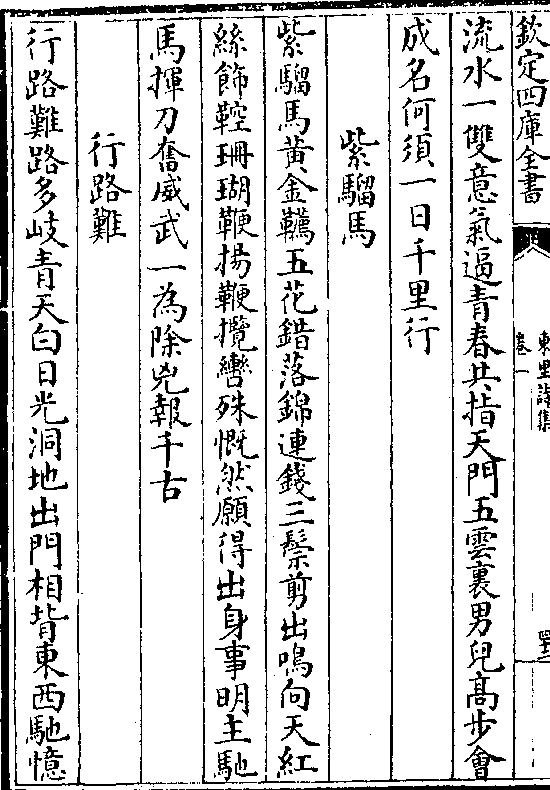 欽定四庫全書
東里詩集
卷一
流水一雙意氣逼青春共指天門五雲裏男兒高步會
成名何須一日千里行
紫騮馬
紫騮馬黃金鞿五花錯落錦連錢三鬃剪出鳴向天紅
絲飾鞚珊瑚鞭揚鞭攬轡殊慨然願得出身事明主馳
馬揮刀奮威武一為除兇報千古
行路難
行路難路多岐青天白日光洞地出門相背東西馳憶